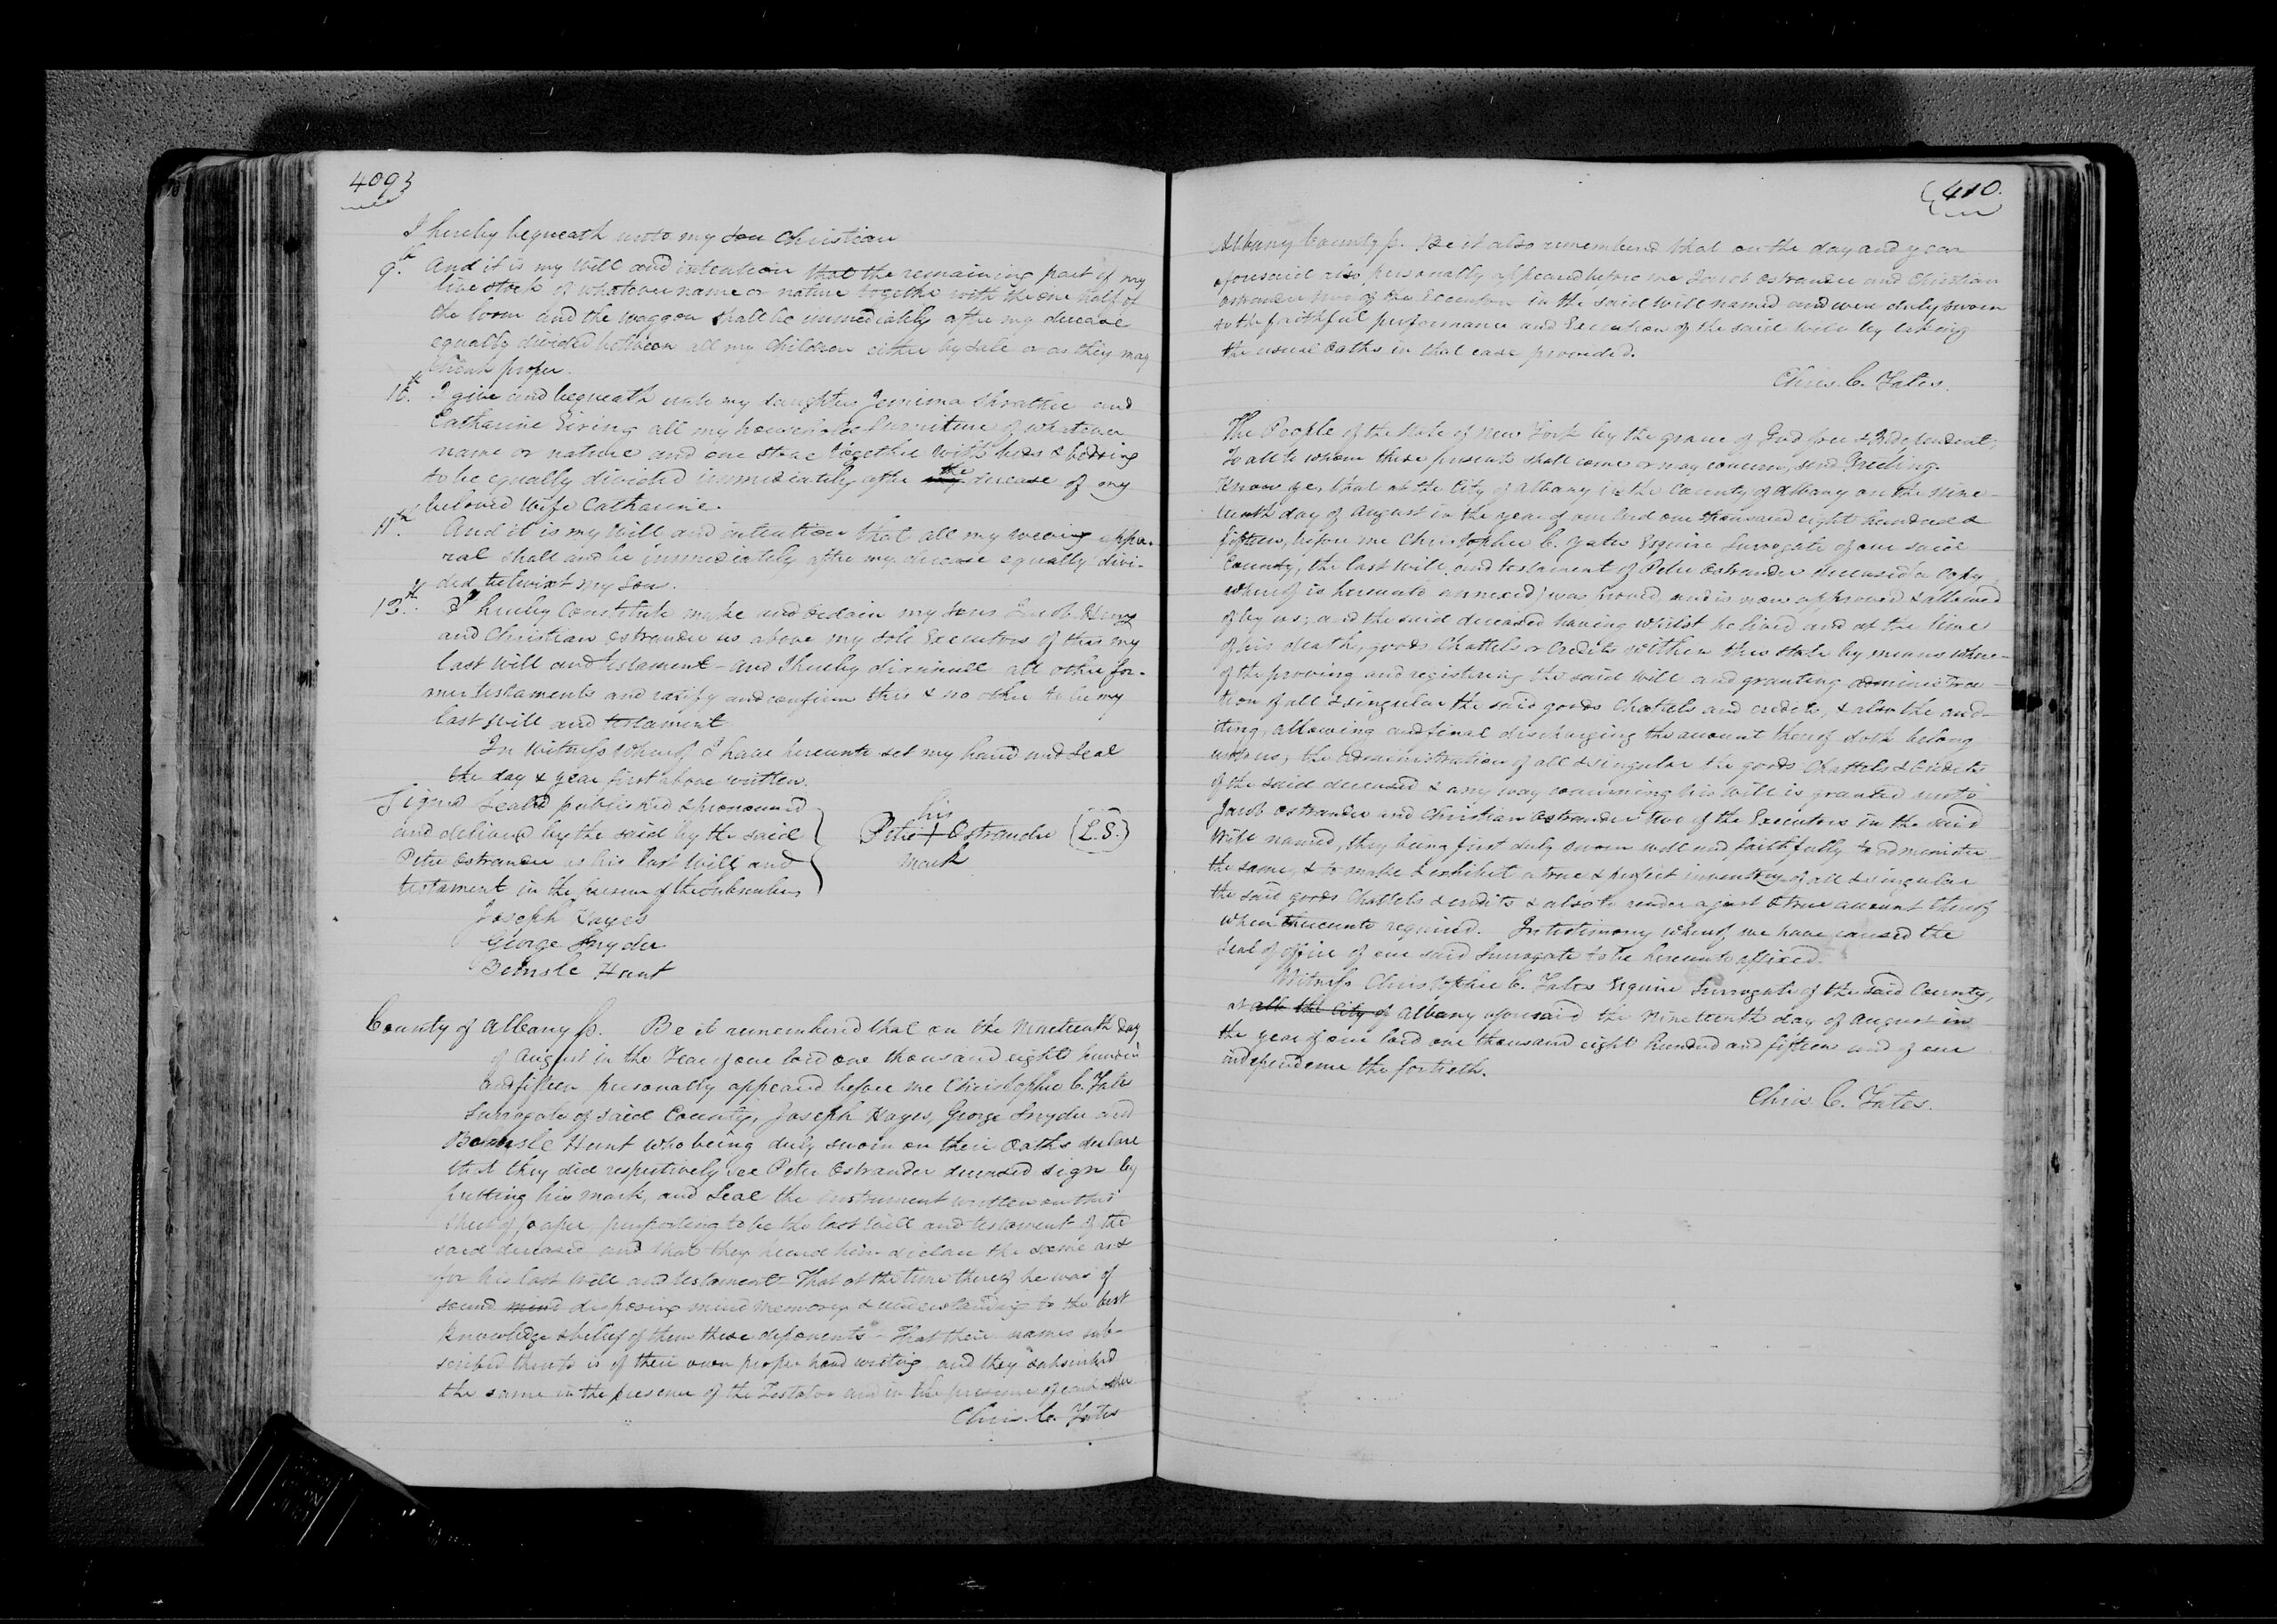 409
I hereby bequeath unto my son Christian
9th. And it is my will and intention that the remaining part of my
live stock of whatever name or nature together with the one half of
the loom and the waggon shall be immediately after my decease
equally divided between all my children either by sale or as they may
think proper.
10th. I give and bequeath unto my daughters Jemima and
Catharine all my household furniture of whatever
name or nature and one together with beds & bedding
to be equally divided immediately after the decease of my
beloved wife Catharine.
11th. And it is my will and intention that all my wearing appa-
ral shall and be immediately after my decease equally divi-
ded betwixt my sons.
13th. I hereby Constitute make and ordain my sons Jacob Henry
and Christian Ostrander as above my sole Executors of this my
last will and testament - and I hereby disannull all other for-
mer testaments and ratify and confirm this & no other to be my
last will and testament
In witness whereof I have hereunto set my hand and seal
the day & year first above written.
Signed sealed published & pronounced
and delivered by the said by the said
Peter Ostrander as his last will and
testament in the presence of the subscribers
his
Peter + Ostrander (L.S.)
mark
Joseph Hayes
George Snyder
Bemsle Hunt
County of Albany ss. Be it remembered that on the nineteenth day
of August in the Year of our lord one thousand eight hundred
and fifteen personally appeared before me Christopher C. Yates
Surrogate of said County, Joseph Hayes, George Snyder and
Bemsle Hunt who being duly sworn on their Oaths declare
that they did respectively see Peter Ostrander deceased sign by
putting his mark, and seal the instrument written on this
sheet of paper, purporting to be the last will and testament of the
said deceased and that they heard him declare the same as &
for his last will and testament. That at the time thereof he was of
sound mind disposing mind memory & understanding to the best
knowledge & belief of them these deponents - That their names sub-
scribed thereto is of their own proper hand writing and they subscribed
the same in the presence of the Testator and in the presence of each other
Chris. C. Yates
410.
Albany County ss. Be it also remembered that on the day and year
aforesaid also personally appeared before me Jacob Ostrander and Christian
Ostrander two of the Executors in the said will named and were duly sworn
to the faithful performance and Execution of the said will by taking
the usual Oaths in that case provided.
Chris. C. Yates.
The People of the State of New York by the grace of God free & Independent
To all to whom these presents shall come or may concern, send Greeting.
Know ye, that at the City of Albany in the County of Albany on the nine-
teenth day of August in the year of our lord one thousand eight hundred &
fifteen, before me Christopher C. Yates Esquire Surrogate of our said
County, the last will and testament of Peter Ostrander deceased (a Copy
whereof is hereunto annexed) was proved and is now approved & allowed
of by us; and the said deceased having whilst he lived and at the time
of his death, goods, Chattels or Credits within this state by means where-
of the proving and registering the said will and granting administra-
tion of all & singular the said goods chattels and credits, & also the aud-
iting, allowing and final discharging the account thereof doth belong
unto us; the administration of all & singular the goods Chattels & Credits
of the said deceased & any way concerning his will is granted unto
Jacob Ostrander and Christian Ostrander two of the Executors in the said
Will named, they being first duly sworn well and faithfully to administer
the same, & to make & exhibit a true & perfect inventory of all & singular
the said goods Chattels & credits & also to render a just & true account thereof
when thereunto required. In testimony whereof we have caused the
seal of office of our said Surrogate to be hereunto affixed.
Witness Christopher C. Yates Esquire Surrogate of the said County,
at all the City of Albany aforesaid the nineteenth day of August in
the year of our lord one thousand eight hundred and fifteen and of our
independence the fortieth.
Chris. C. Yates.